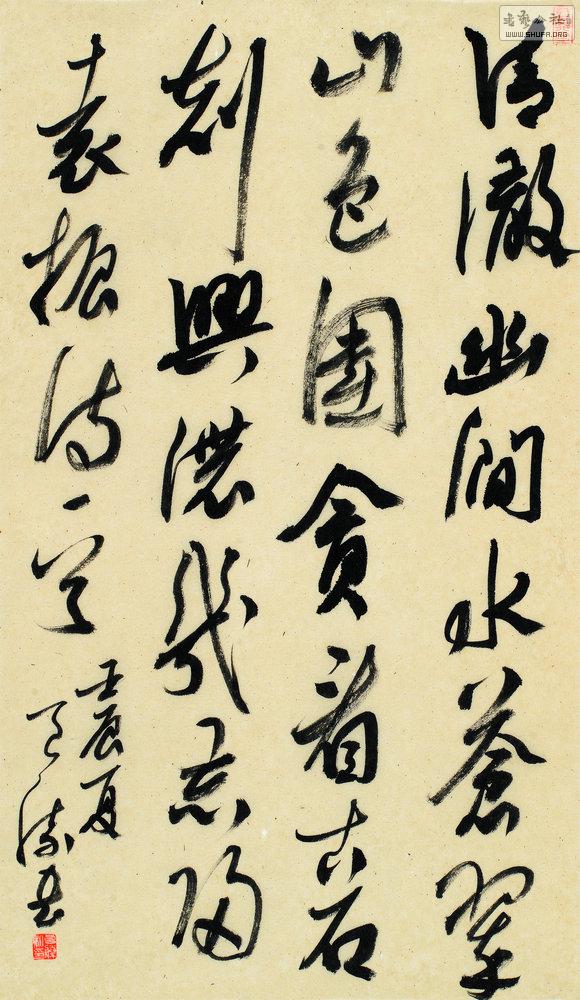 清澈幽涧水苍翠
山色围贪看古石
刻兴浓几忘归
袁枢诗一首
壬辰夏
书
书艺公社
WWW.SHUFA.ORG